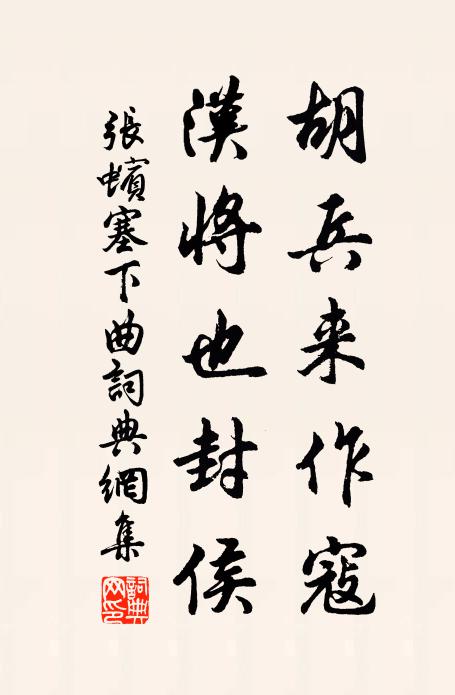 胡兵来作寇
漢將也封侯
張蠙塞下曲詞典網集
詞典网印